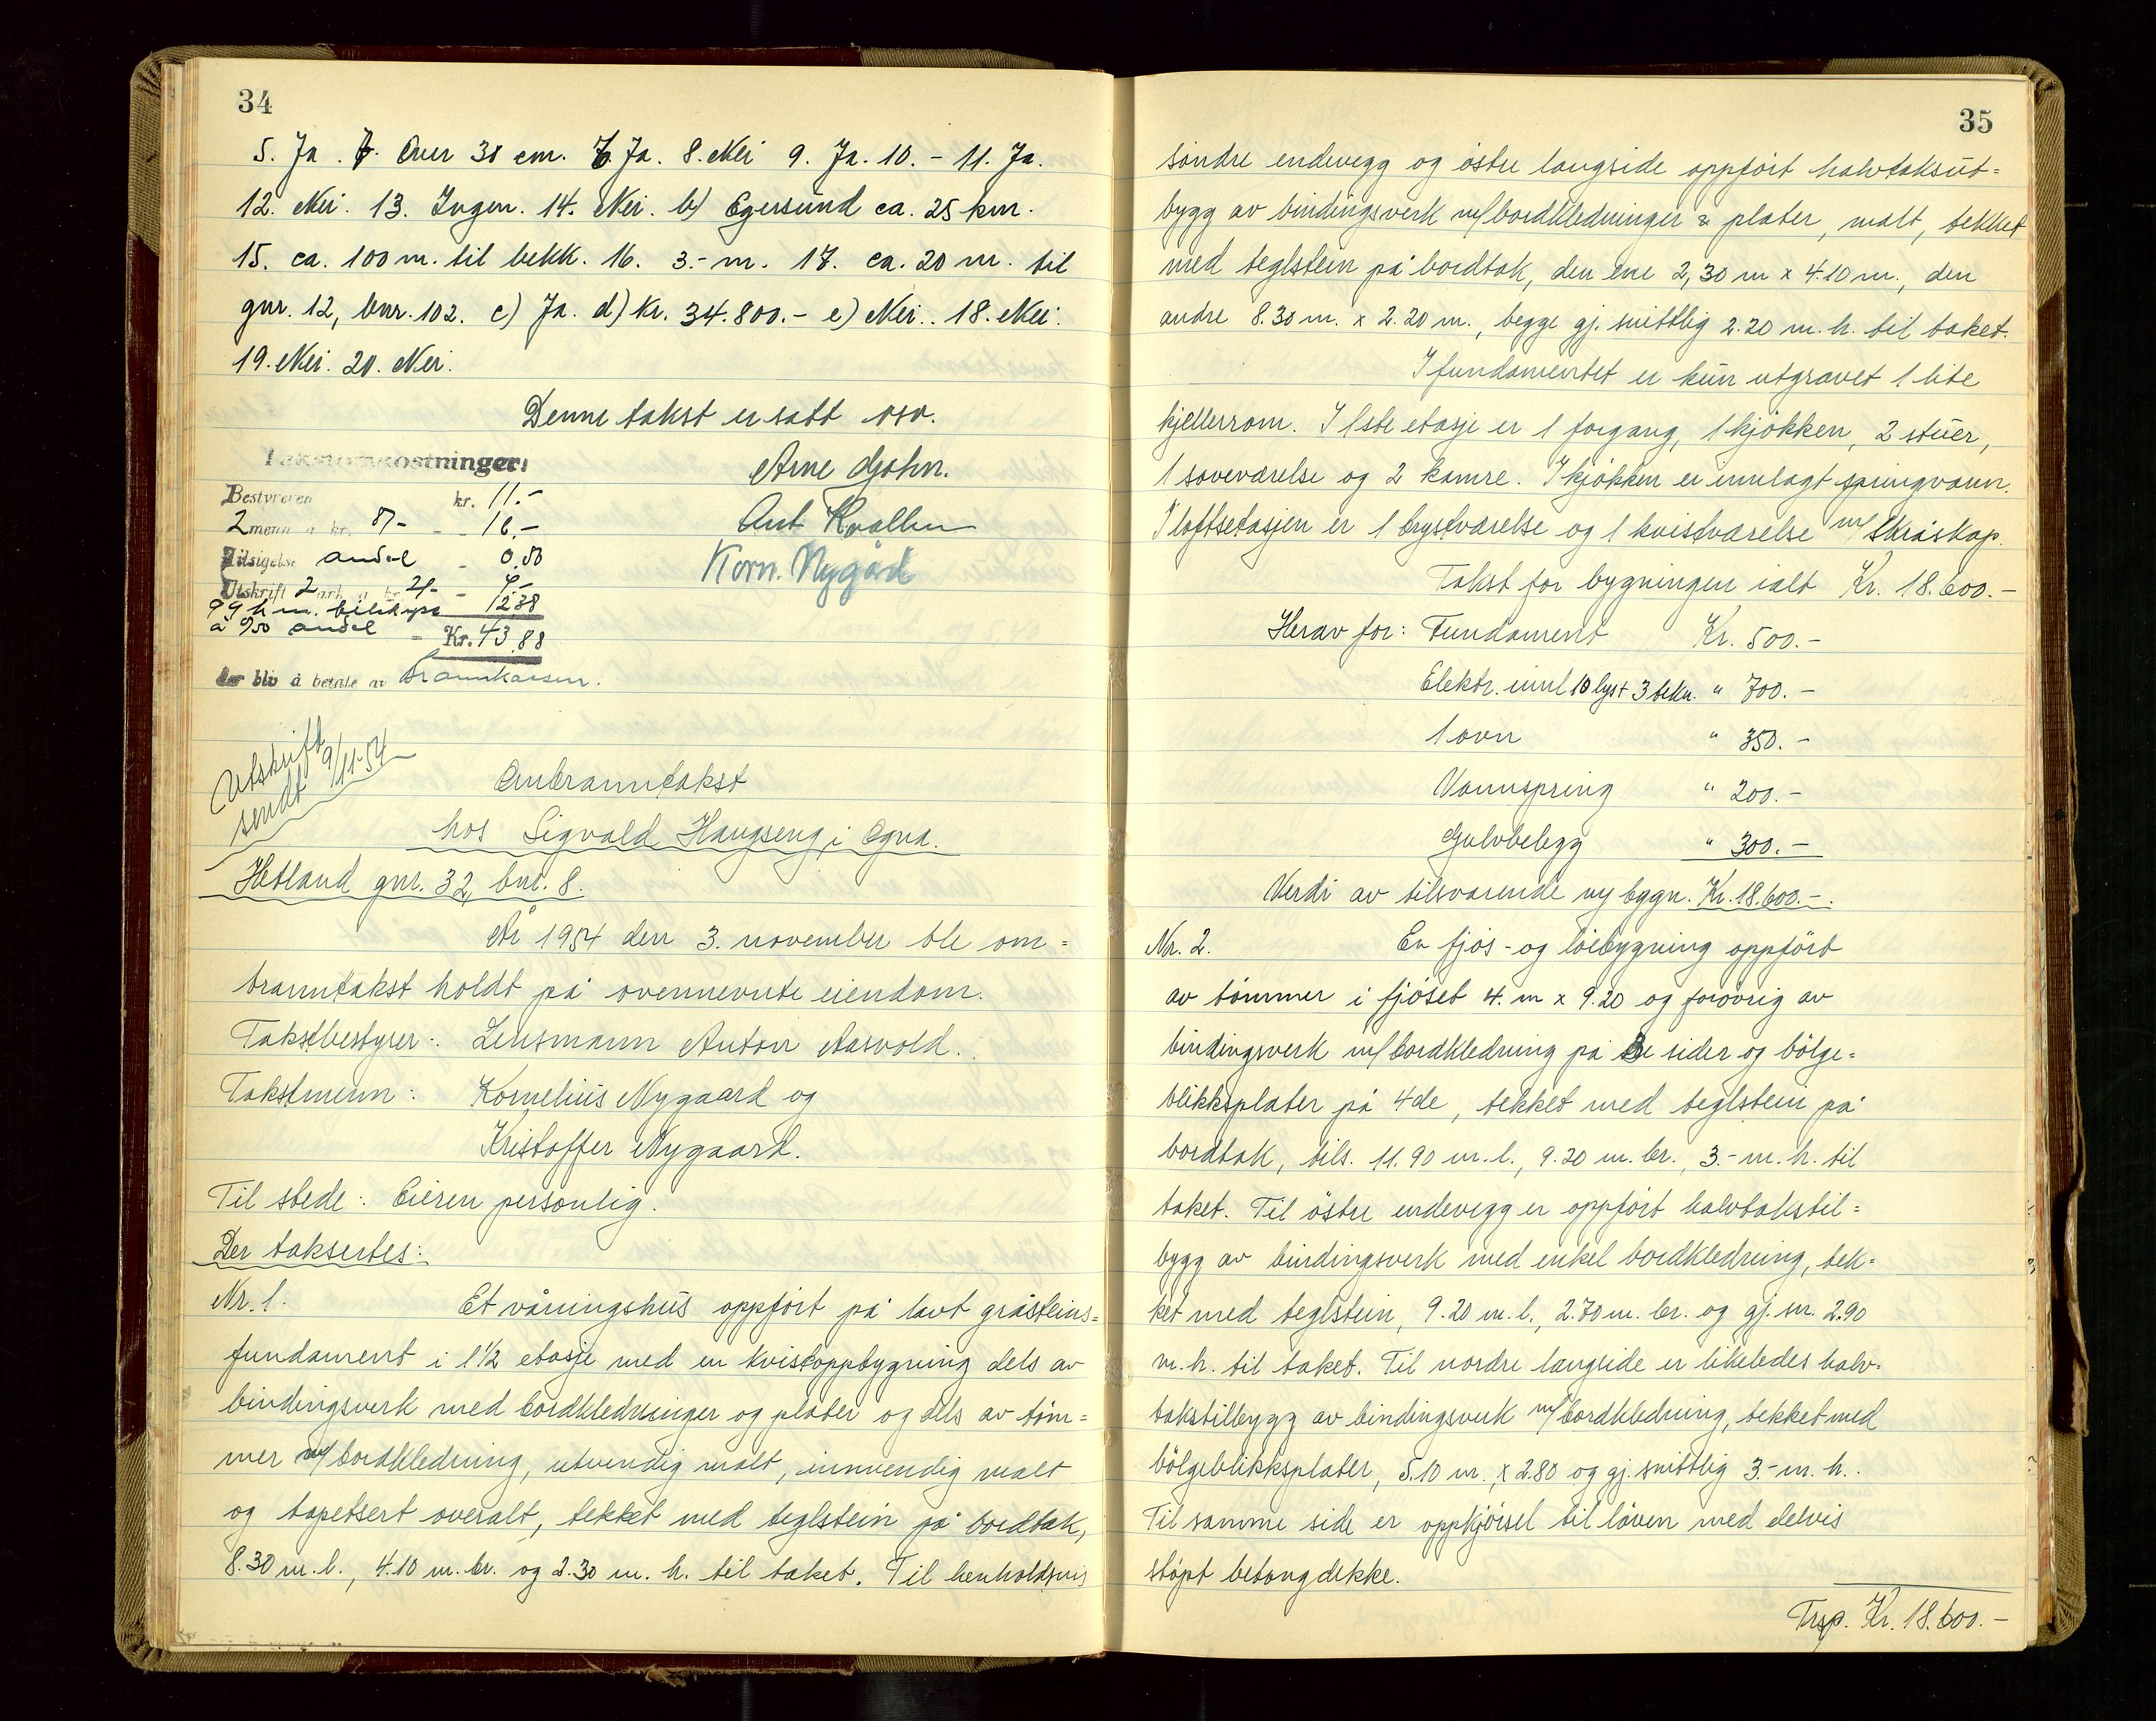 34
5. Ja. 6. Over 30 cm. 7. Ja. 8. Nei 9. Ja. 10. - 11. Ja.
12. Nei. 13. Ingen. 14. Nei. b) Egersund ca. 25 km.
15. ca. 100 m. til bekk. 16. 3.- m. 17. ca. 20 m. til
gnr. 12, bnr. 102. c) Ja. d) Kr. 34.800.- e) Nei.. 18. Nei.
19. Nei. 20. Nei.
Denne takst er satt osv.
Takstomkostninger:
Bestyreren kr. 11.-
2 menn a kr. 8/- - 16.-
Tilsigelse andel - 0.50
Utskrift 2 ark a kr. 2/- - 4.-
99 km. bilskyss 12.38
à 0/50 andel - Kr. 43.88
der blir å betale av Brannkassen.
Arne Gjøhn.
Ant Kvallen
Korn. Nygård
Utskrift
sendt 9/11-54
Ombranntakst
hos Sigvald Haugseng, i Ogna.
Hetland gnr. 32, bnr. 8.
År 1954 den 3. november ble om=
branntakst holdt på ovennevnte eiendom.
Takstbestyrer: Lensmann Anton Aasvold.
Takstmenn: Kornelius Nygaard og
Kristoffer Nygaard.
Til stede: Eieren personlig.
Der taksertes:
Nr. 1. Et våningshus oppført på lavt gråsteins=
fundament i 1 1/2 etasje med en kvistoppbygning dels av
bindingsverk med bordkledninger og plater og dels av töm=
mer m/ bordkledning, utvendig malt, innvendig malt
og tapetsert overalt, tekket med teglstein på bordtak,
8.30 m. l., 4.10 m. br. og 2.30 m. h. til taket. Til henholdsvis
35
söndre endevegg og östre langside oppfört halvtaksut=
bygg av bindingsverk m/ bordkledninger & plater, malt, tekket
med teglstein på bordtak, den ene 2,30 m x 4.10 m., den
andre 8.30 m. x 2.20 m., begge gj. snittlig 2.20 m. h. til taket.
I fundamentet er kun utgravet 1 lite
kjellerrom. I 1ste etasje er 1 forgang, 1 kjökken, 2 stuer,
1 soveværelse og 2 kamre. I kjökken er innlagt springvann.
I loftsetasjen er 1 brystværelse og 1 kvistværelse m/ skråskap.
Takst for bygningen ialt Kr. 18.600.-
Herav for: Fundament Kr. 500.-
Elektr. innl 10 lys + 3 tekn. " 700.-
1 ovn " 350.-
Vannspring " 200.-
Gulvbelegg " 300.-
Verdi av tilsvarende ny bygn. Kr. 18.600.-.
Nr. 2. En fjös- og löebygning oppfört
av tömmer i fjöset 4. m x 9.20 og forövrig av
bindingsverk m/ bordkledning på 3 sider og bölge=
blikksplater på 4de, tekket med teglstein på
bordtak, tils. 11.90 m. l., 9.20 m. br., 3.- m. h. til
taket. Til östre endevegg er oppfört halvtakstil=
bygg av bindingsverk med enkel bordkledning, tek=
ket med teglstein, 9.20 m. l., 2.70 m. br. og gj. sn. 2.90
m. h. til taket. Til nordre langside er likeledes halv=
takstilbygg av bindingsverk m/ bordkledning, tekket med
bölgeblikksplater, 5.10 m. x 2.80 og gj. snittlig 3.- m. h..
Til samme side er oppkjörsel til löven med delvis
stöpt betongdekke.
Trsp. Kr. 18.600.-